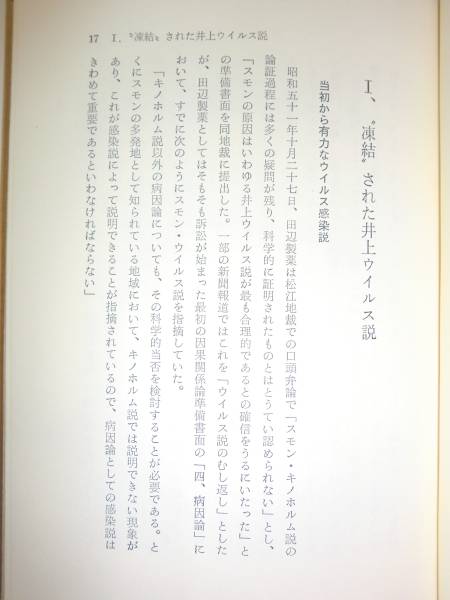 17 Ⅰ、〝凍結〟された井上ウイルス説
Ⅰ、〝凍結〟された井上ウイルス説
当初から有力なウイルス感染説
昭和五十一年十月二十七日、田辺製薬は松江地裁での口頭弁論で「スモン・キノホルム説の
論証過程には多くの疑問が残り、科学的に証明されたものとはとうてい認められない」とし、
「スモンの原因はいわゆる井上ウイルス説が最も合理的であるとの確信をうるにいたった」と
の準備書面を同地裁に提出した。一部の新聞報道ではこれを「ウイルス説のむし返し」とした
が、田辺製薬としてはそもそも訴訟が始まった最初の因果関係論準備書面の「四、病因論」に
おいて、すでに次のようにスモン・ウイルス説を指摘していた。
「キノホルム説以外の病因論についても、その科学的当否を検討することが必要である。と
くにスモンの多発地として知られている地域において、キノホルム説では説明できない現象が
あり、これが感染説によって説明できることが指摘されているので、病因論としての感染説は
きわめて重要であるといわなければならない」